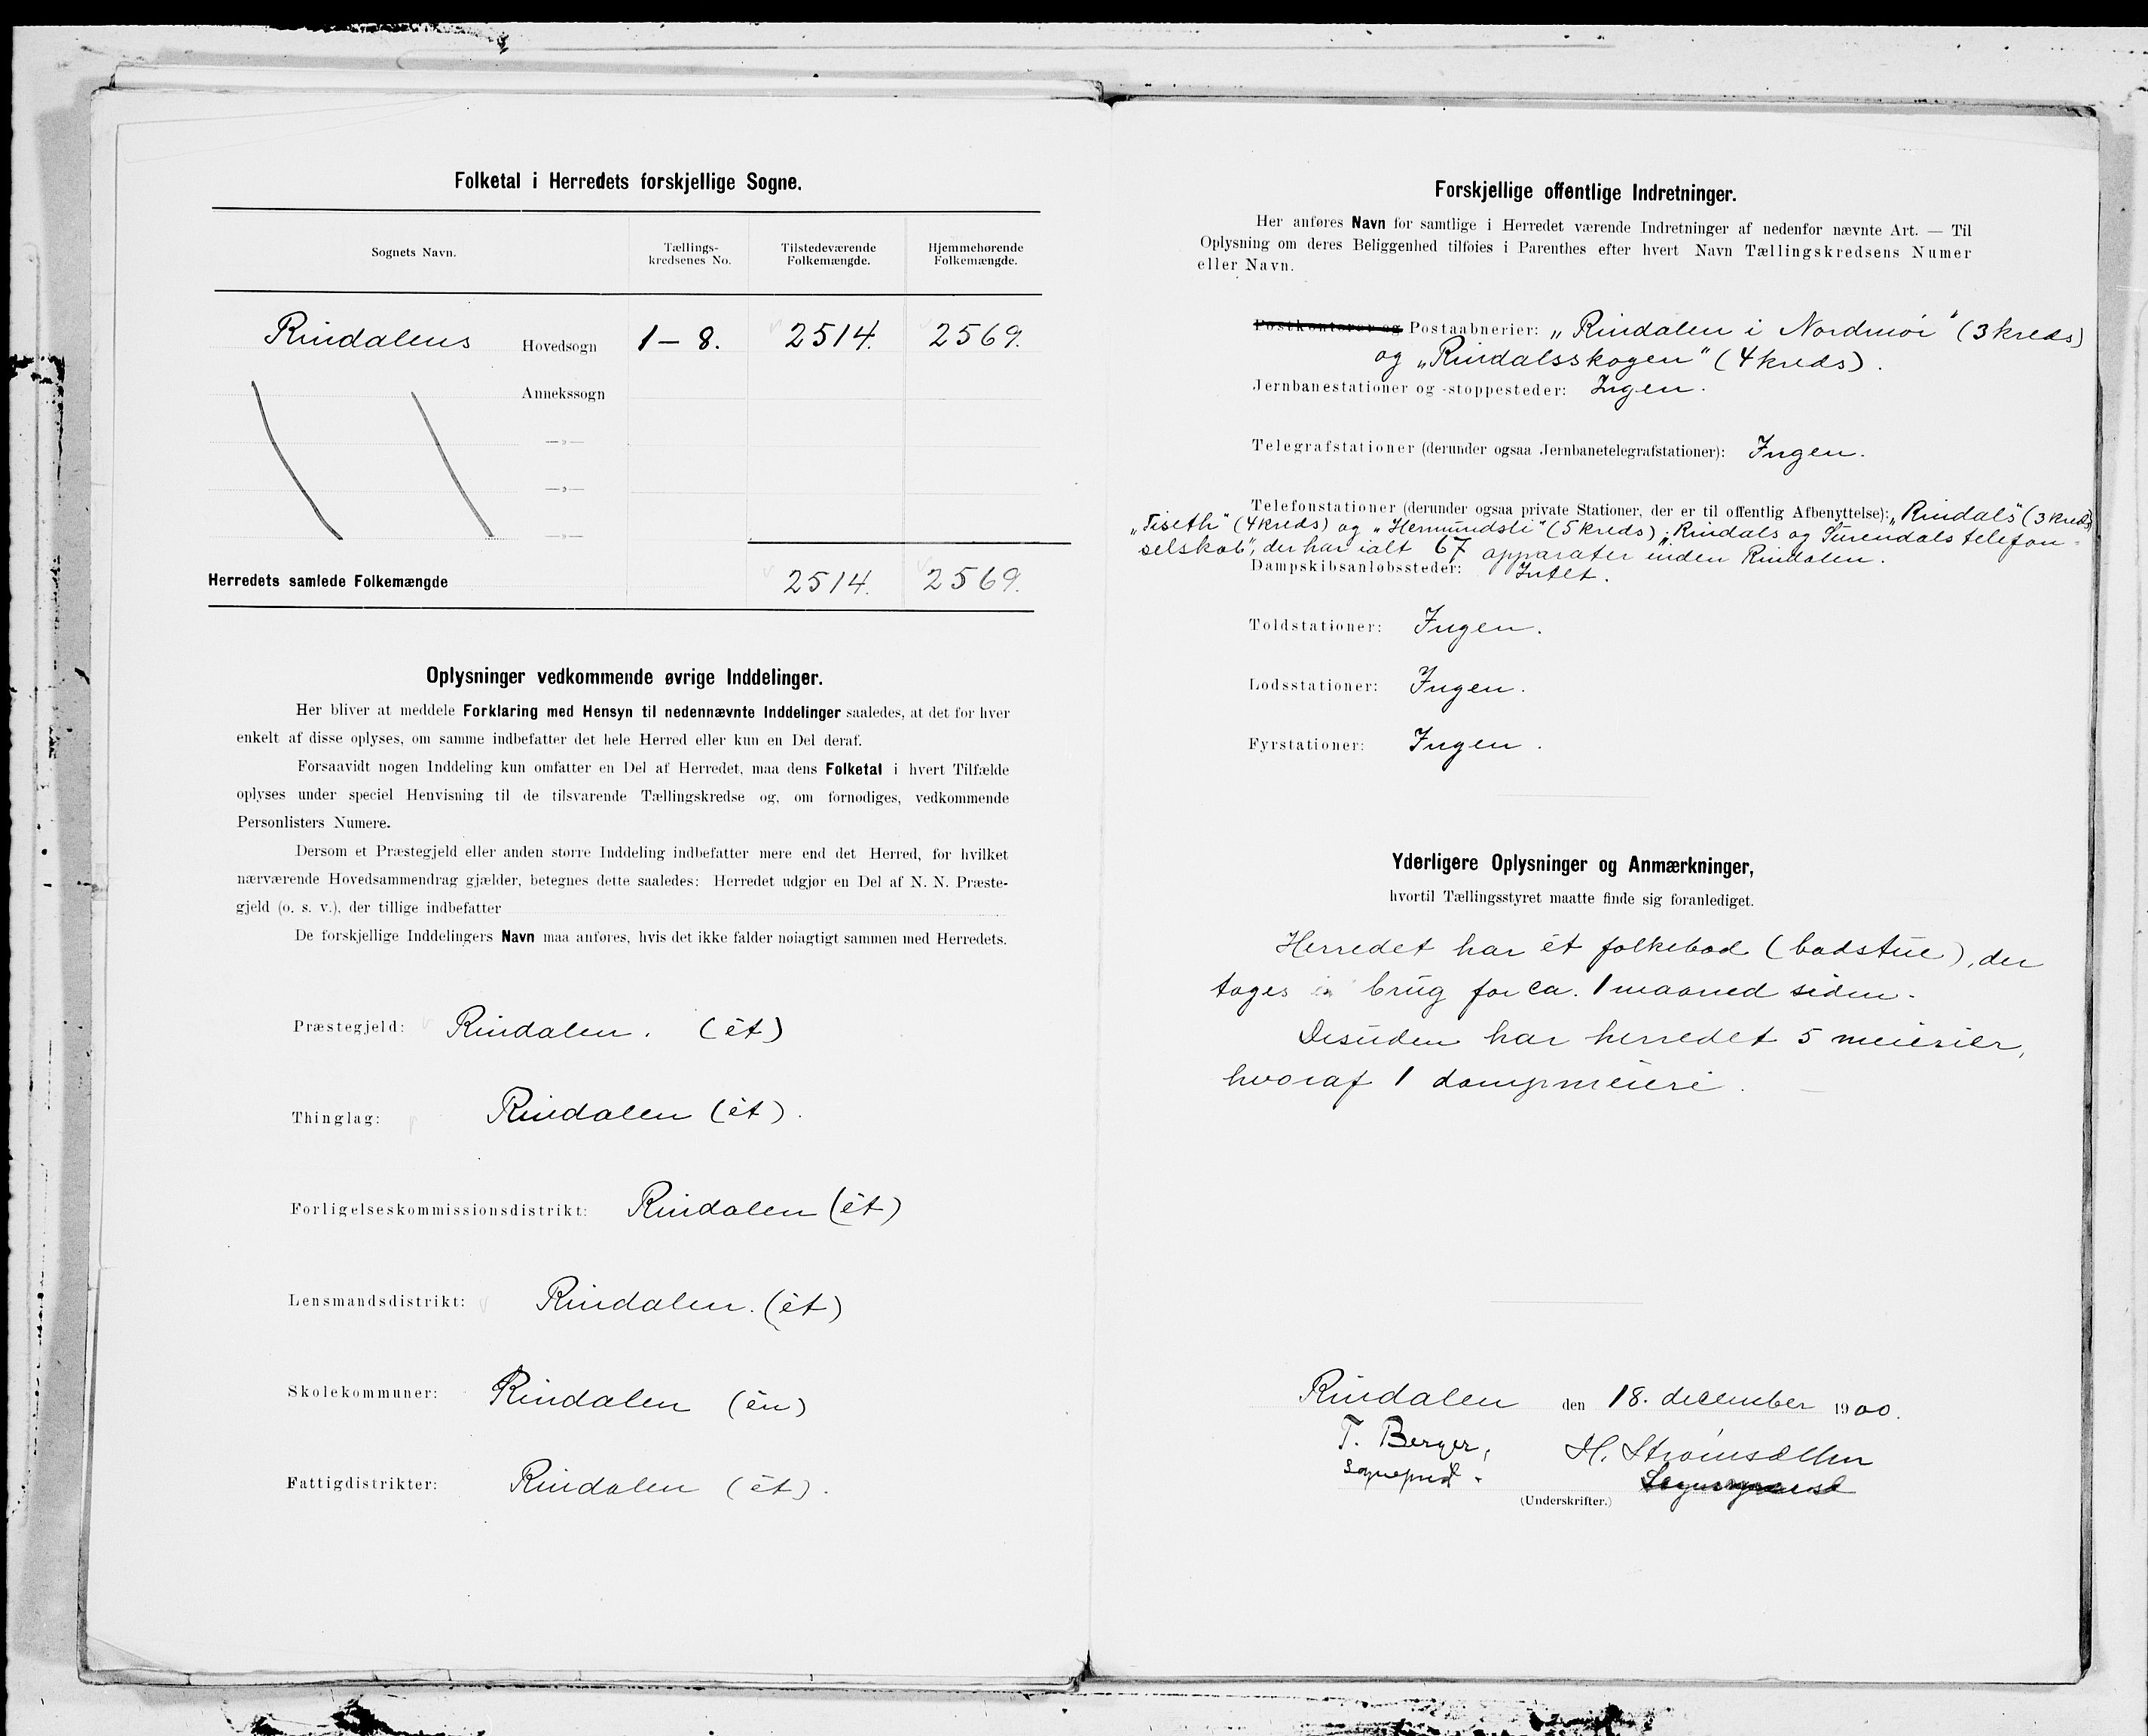 Folketal i Herredets forskjellige Sogne.
Sognets Navn. Tællings-kredsenes No. Tilstedeværende Folkemængde. Hjemmehørende Folkemængde.
Rindalens Hovedsogn 1–8. 2514. 2569.
Annekssogn
—»—
—»—
—»—
Herredets samlede Folkemængde 2514. 2569.
Oplysninger vedkommende øvrige Inddelinger.
Her bliver at meddele Forklaring med Hensyn til nedennævnte Inddelinger saaledes, at det for hver
enkelt af disse oplyses, om samme indbefatter det hele Herred eller kun en Del deraf.
Forsaavidt nogen Inddeling kun omfatter en Del af Herredet, maa dens Folketal i hvert Tilfælde
oplyses under speciel Henvisning til de tilsvarende Tællingskredse og, om fornødiges, vedkommende
Personlisters Numere.
Dersom et Præstegjeld eller anden større Inddeling indbefatter mere end det Herred, for hvilket
nærværende Hovedsammendrag gjælder, betegnes dette saaledes: Herredet udgjør en Del af N. N. Præste-
gjeld (o. s. v.), der tillige indbefatter
De forskjellige Inddelingers Navn maa anføres, hvis det ikke falder nøiagtigt sammen med Herredets.
Præstegjeld: Rindalen. (ét)
Thinglag: Rindalen (ét).
Forligelseskommissionsdistrikt: Rindalen (ét)
Lensmandsdistrikt: Rindalen. (ét)
Skolekommuner: Rindalen (én)
Fattigdistrikter: Rindalen (ét).
Forskjellige offentlige Indretninger.
Her anføres Navn for samtlige i Herredet værende Indretninger af nedenfor nævnte Art. — Til
Oplysning om deres Beliggenhed tilføies i Parenthes efter hvert Navn Tællingskredsens Numer
eller Navn.
Postkontorer og Postaabnerier: „Rindalen i Nordmør" (3 kreds)
og „Rindalsskogen" (4 kreds).
Jernbanestationer og -stoppesteder: Ingen.
Telegrafstationer (derunder ogsaa Jernbanetelegrafstationer): Ingen.
Telefonstationer (derunder ogsaa private Stationer, der er til offentlig Afbenyttelse): „Rindals" (3 kreds)
„Tiseth" (4 kreds) og „Hermundsli" (5 kreds) „Rindals og Surendals telefon-
selskab", der har ialt 67 apparater inden Rindalen.
Dampskibsanløbssteder: Intet.
Toldstationer: Ingen.
Lodsstationer: Ingen.
Fyrstationer: Ingen.
Yderligere Oplysninger og Anmærkninger,
hvortil Tællingsstyret maatte finde sig foranlediget.
Herredet har ét folkebad (badstue), der
toges i brug for ca. 1 maaned siden.
Desuden har herredet 5 meierier,
hvoraf 1 dampmeieri.
Rindalen den 18. december 1900.
T. Berger, H. Strømsæther
Sogneprest. Sogneprest
(Underskrifter.)